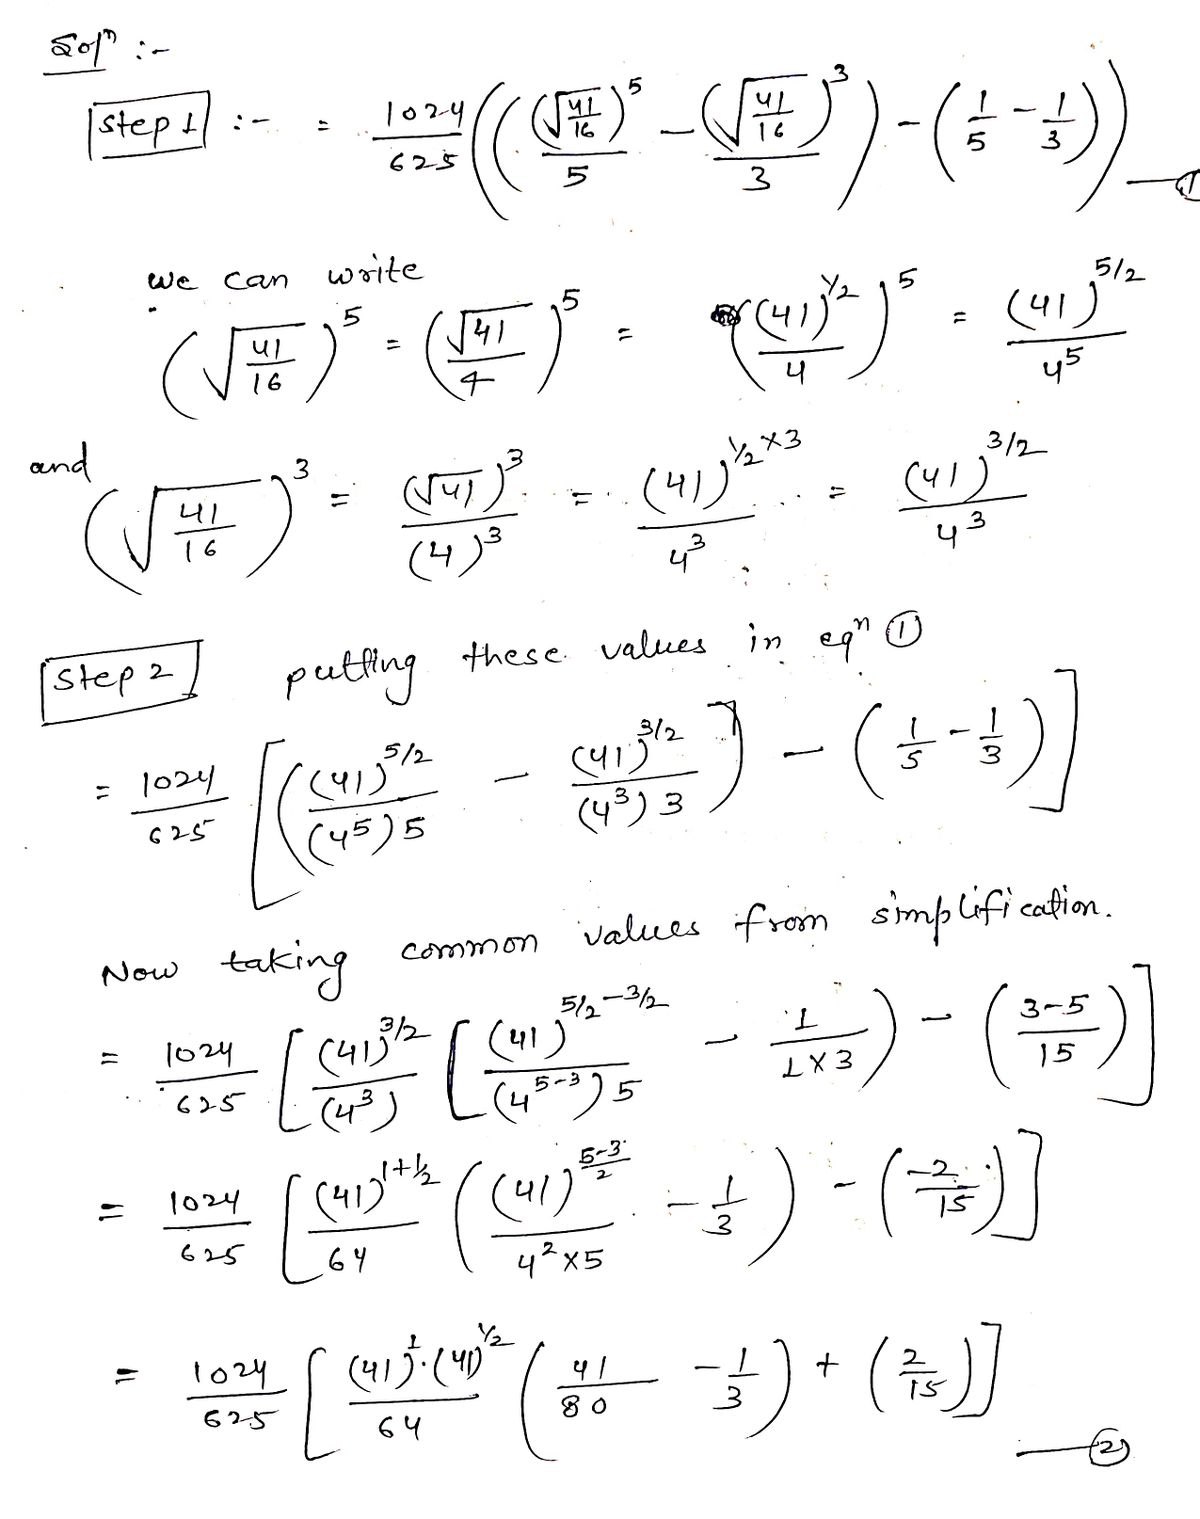 Solⁿ :-
Step 1 :- = 1024/625 (( (√(41/16))^5/5 - (√(41/16))^3/3 ) - (1/5 - 1/3)) — ①
we can write
(√(41/16))^5 = (√41/4)^5 = ((41)^(1/2)/4)^5 = (41)^(5/2)/4^5
and
(√(41/16))^3 = (√41)^3/(4)^3 = (41)^(1/2×3)/4^3 = (41)^(3/2)/4^3
Step 2 putting these values in eqⁿ ①
= 1024/625 [( (41)^(5/2)/(4^5)5 - (41)^(3/2)/(4^3)3 ) - (1/5 - 1/3)]
Now taking common values from simplification.
= 1024/625 [ (41)^(3/2)/(4^3) [ (41)^(5/2-3/2)/(4^(5-3))5 - 1/(1×3) ) - ((3-5)/15) ]
= 1024/625 [ (41)^(1+1/2)/64 ( (41)^((5-3)/2)/(4^2×5) - 1/3 ) - (-2/15) ]
= 1024/625 [ (41)^1·(41)^(1/2)/64 ( 41/80 - 1/3 ) + (2/15) ] — ②